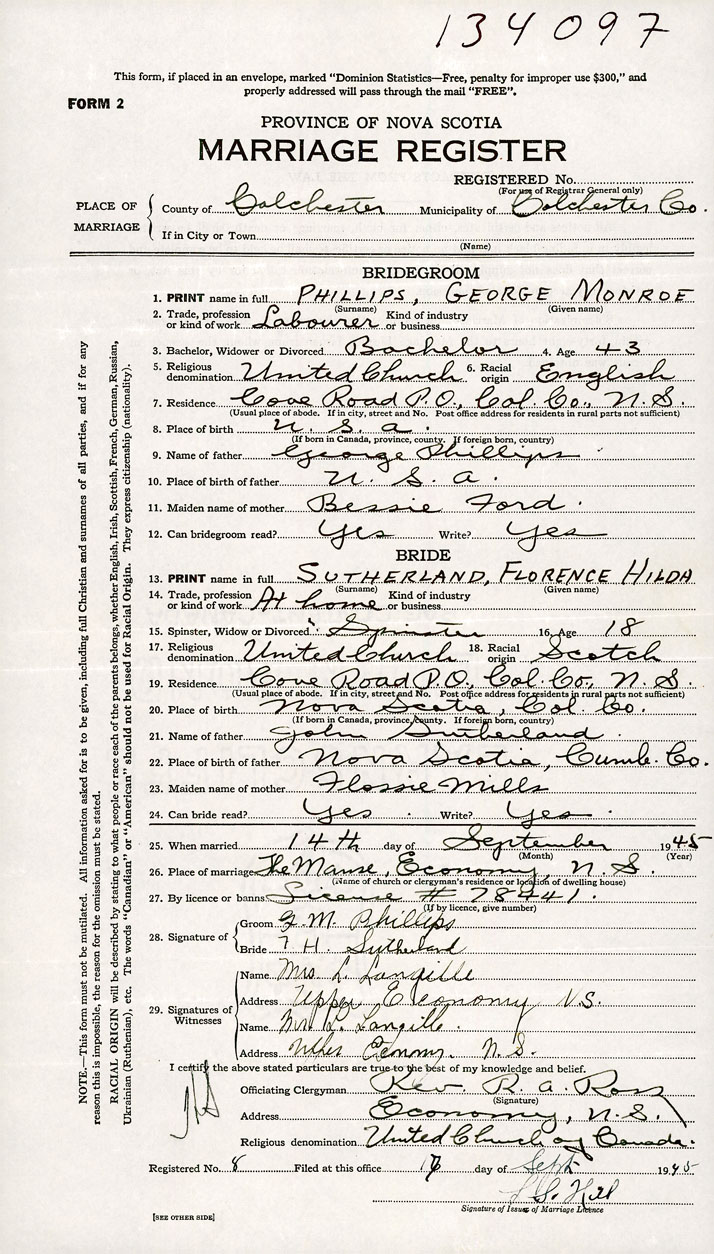 134097
This form, if placed in an envelope, marked "Dominion Statistics—Free, penalty for improper use $300," and
properly addressed will pass through the mail "FREE".
FORM 2
PROVINCE OF NOVA SCOTIA
MARRIAGE REGISTER
REGISTERED No.
(For use of Registrar General only)
PLACE OF MARRIAGE
County of Colchester Municipality of Colchester Co.
If in City or Town
(Name)
BRIDEGROOM
1. PRINT name in full PHILLIPS, GEORGE MONROE
(Surname) (Given name)
2. Trade, profession or kind of work Labourer Kind of industry or business
3. Bachelor, Widower or Divorced Bachelor 4. Age 43
5. Religious denomination United Church 6. Racial origin English
7. Residence Cove Road P.O., Col. Co., N.S.
(Usual place of abode. If in city, street and No. Post office address for residents in rural parts not sufficient)
8. Place of birth U.S.A.
(If born in Canada, province, county. If foreign born, country)
9. Name of father George Phillips
10. Place of birth of father U.S.A.
11. Maiden name of mother Bessie Ford
12. Can bridegroom read? Yes Write? Yes
BRIDE
13. PRINT name in full SUTHERLAND, FLORENCE HILDA
(Surname) (Given name)
14. Trade, profession or kind of work At home Kind of industry or business
15. Spinster, Widow or Divorced Spinster 16. Age 18
17. Religious denomination United Church 18. Racial origin Scotch
19. Residence Cove Road P.O., Col. Co., N.S.
(Usual place of abode. If in city, street and No. Post office address for residents in rural parts not sufficient)
20. Place of birth Nova Scotia, Col. Co.
(If born in Canada, province, county. If foreign born, country)
21. Name of father John Sutherland
22. Place of birth of father Nova Scotia, Cumb. Co.
23. Maiden name of mother Flossie Mills
24. Can bride read? Yes Write? Yes
25. When married 14th day of September 1945
(Month) (Year)
26. Place of marriage The Manse, Economy, N.S.
(Name of church or clergyman's residence or location of dwelling house)
27. By licence or banns License # 78441
(If by licence, give number)
28. Signature of
Groom G. M. Phillips
Bride H. Sutherland
29. Signatures of Witnesses
Name Mrs. L. Langille
Address Upper Economy N.S.
Name L. Langille
Address Economy N.S.
I certify the above stated particulars are true to the best of my knowledge and belief.
Officiating Clergyman Rev. R. A. Ross
(Signature)
Address Economy, N.S.
Religious denomination United Church of Canada.
Registered No. 8 Filed at this office day of Sept 1945
Signature of Issuer of Marriage Licence
[SEE OTHER SIDE]
NOTE.—This form must not be mutilated. All information asked for is to be given, including full Christian and surnames of all parties, and if for any
reason this is impossible, the reason for the omission must be stated.
RACIAL ORIGIN will be described by stating to what people or race each of the parents belongs, whether English, Irish, Scottish, French, German, Russian,
Ukrainian (Ruthenian), etc. The words "Canadian" or "American" should not be used for Racial Origin. They express citizenship (nationality).